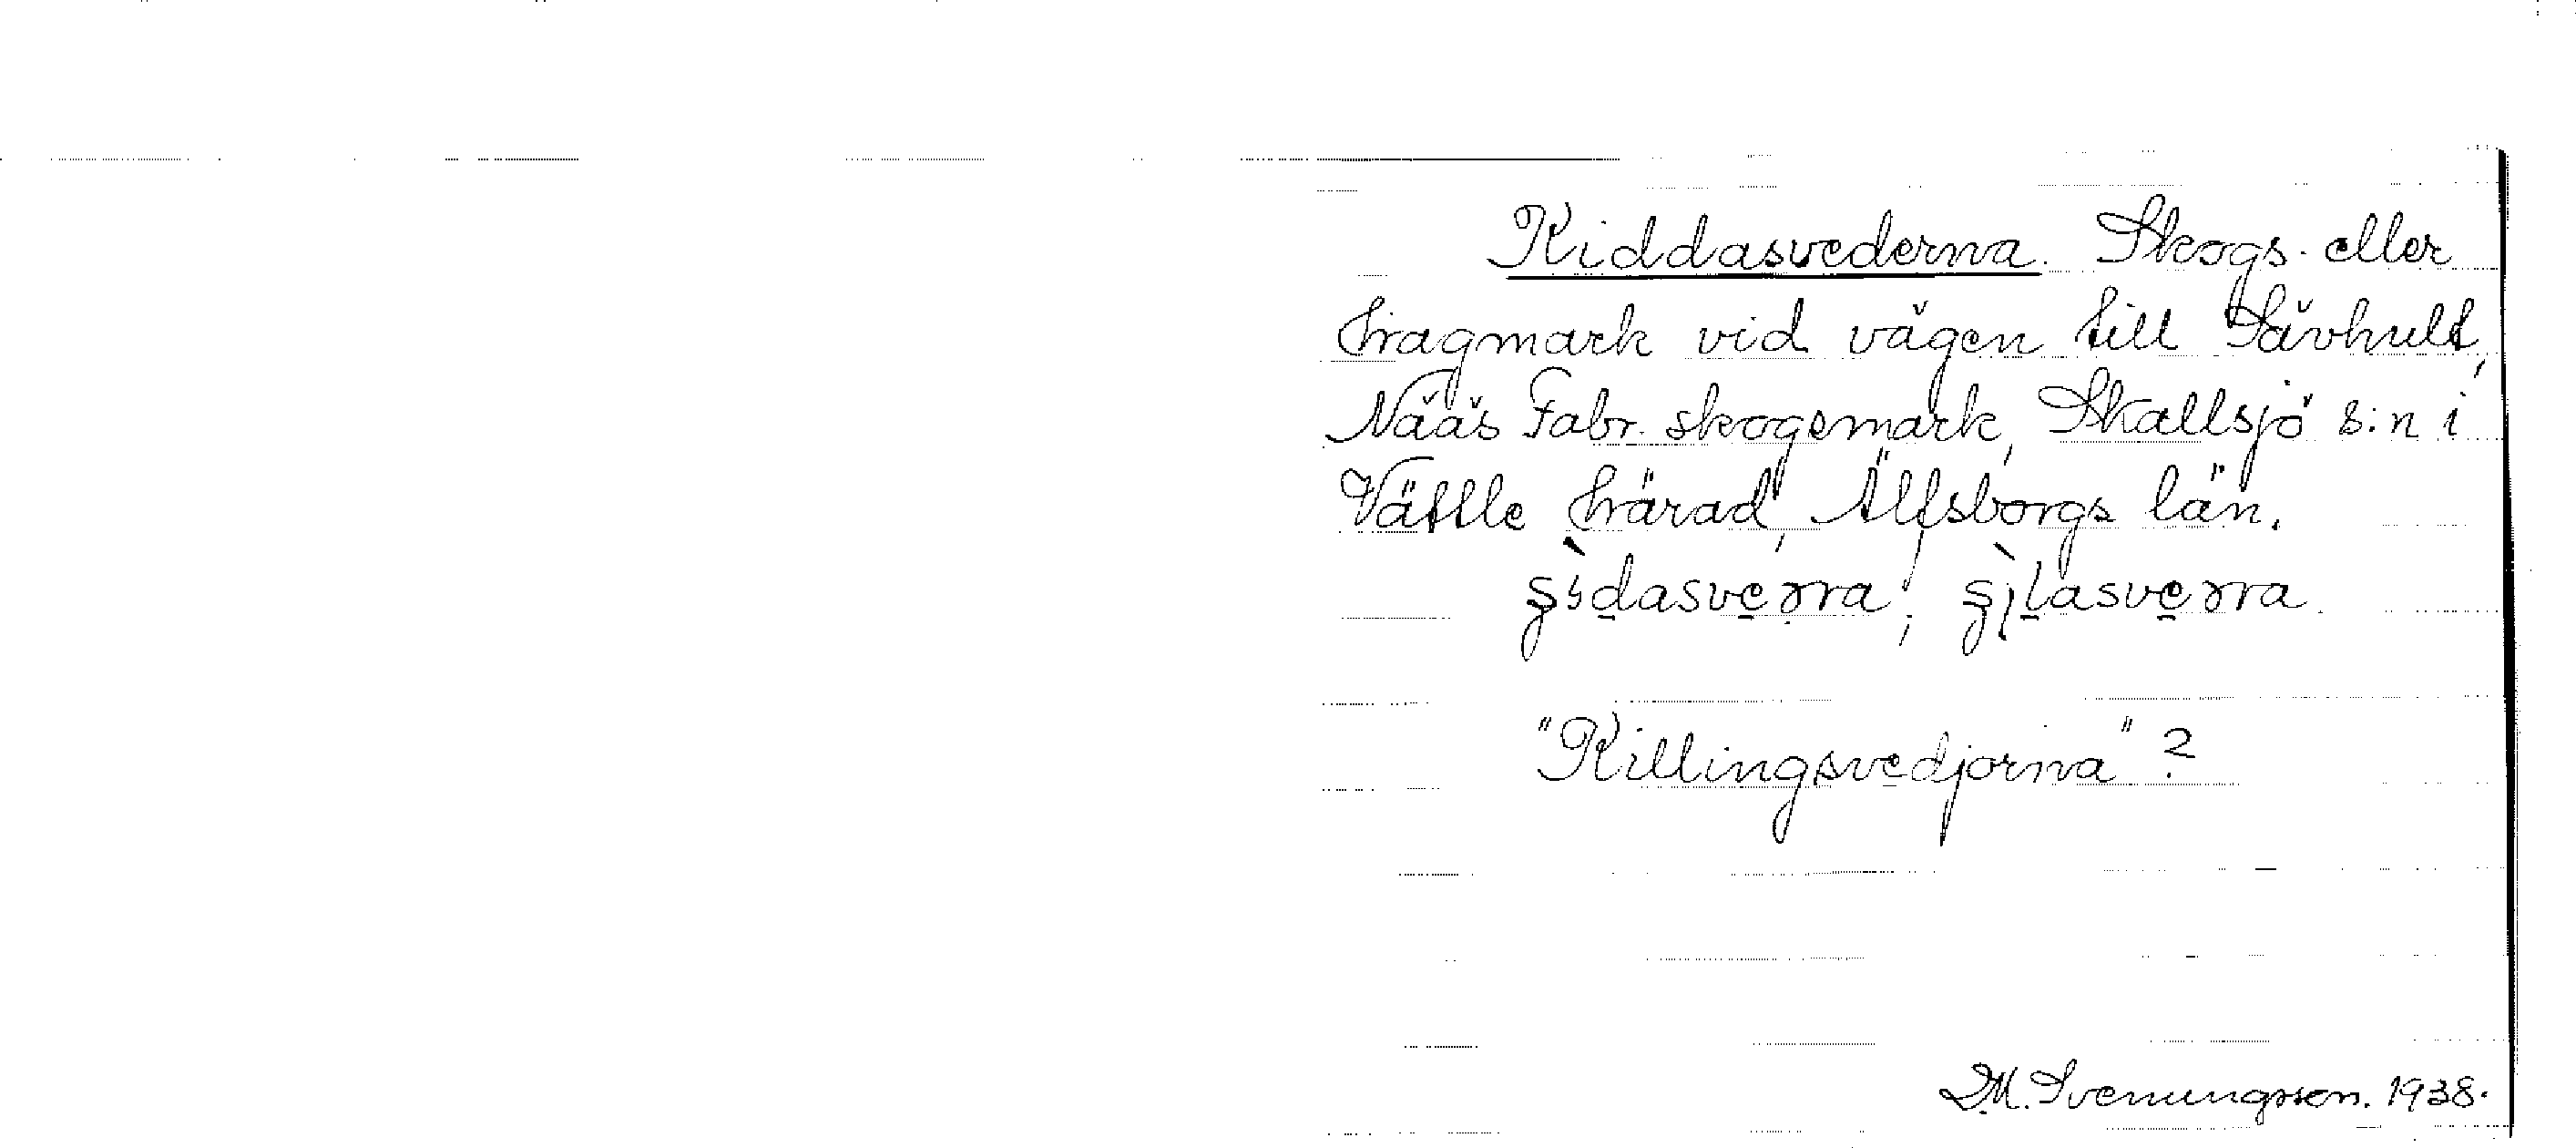 Kiddasvederna. Skogs- eller
hagmark vid vägen till Sävhult,
Nääs Fabr. skogsmark, Skallsjö s:n i
Vättle härad, Älfsborgs län.
"Killingsvedjorna"?
D.M. Svenungsson. 1938.